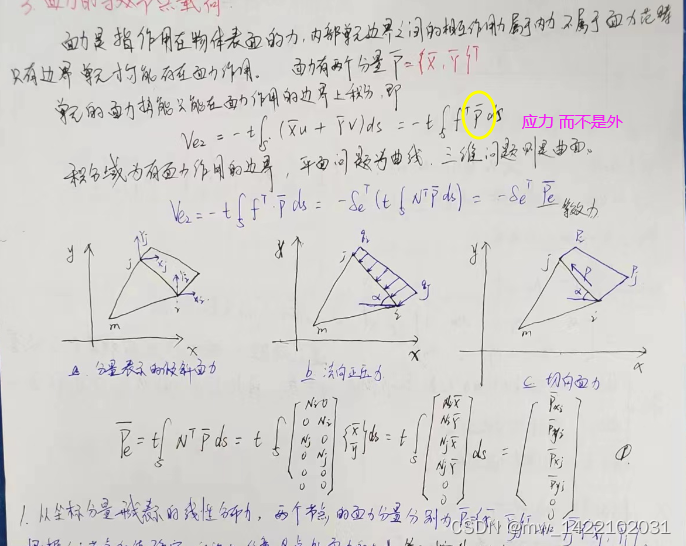 3. 面力的等效节点载荷
面力是指作用在物体表面的力,内部单元边界之间的相互作用力属于内力不属于面力范畴
只有边界单元才可能存在面力作用。 面力有两个分量 P̄={X̄,Ȳ}ᵀ
单元的面力势能只能在面力作用的边界上积分,即
Ve₂ = -t∫s (X̄u + Ȳv)ds = -t∫s fᵀP̄ds 应力 而不是外
积分域为有面力作用的边界,平面问题为曲线,三维问题则是曲面。
Ve₂ = -t∫s fᵀ·P̄ds = -δeᵀ(t∫s NᵀP̄ds) = -δeᵀ P̄e 等效力
y j Yj Xj Yi Xi i m x
y qi j qj α i m x
y Pi j P Pj α i m x
a. 分量表示的倾斜面力 b 法向正压力 c 切向面力
P̄e = t∫s NᵀP̄ds = t∫s [Ni 0; 0 Ni; Nj 0; 0 Nj; 0 0; 0 0] {X̄; Ȳ}ds = t∫s [NiX̄; NiȲ; NjX̄; NjȲ; 0; 0] ds = [P̄xi; P̄yi; P̄xj; P̄yj; 0; 0] ①
1. 从坐标分量形式表示的线性分布力,两个节点的面力分量分别为
CSDN @mw_1422102031